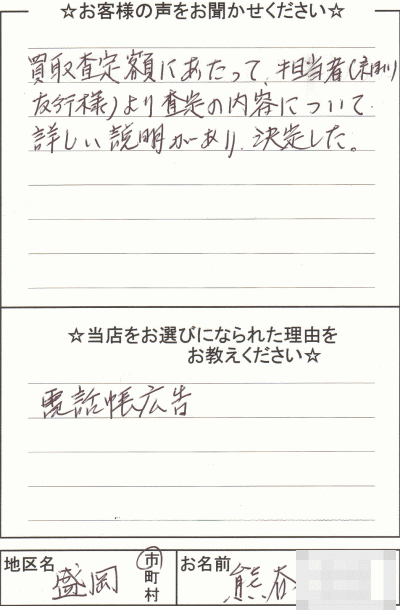 ☆お客様の声をお聞かせください☆
買取査定額にあたって、担当者(
友行様)より査定の内容について
詳しい説明があり、決定した。
☆当店をお選びになられた理由を
お教えください☆
電話帳広告
地区名
盛岡
市
町
村
お名前
熊谷